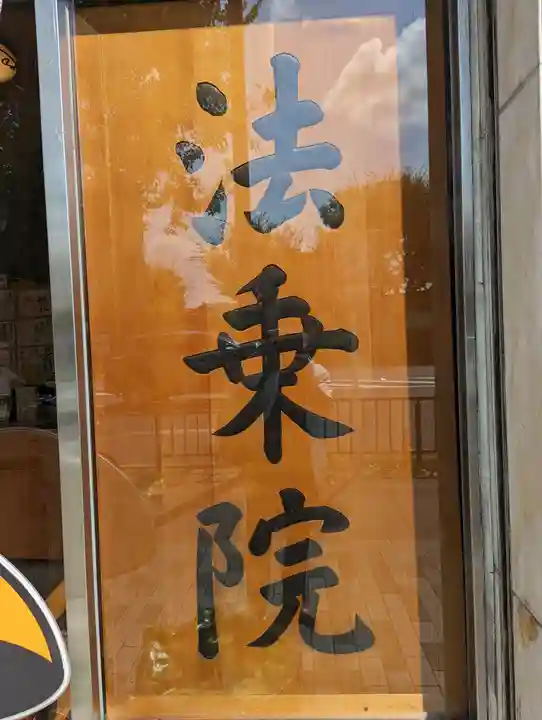 法乗院